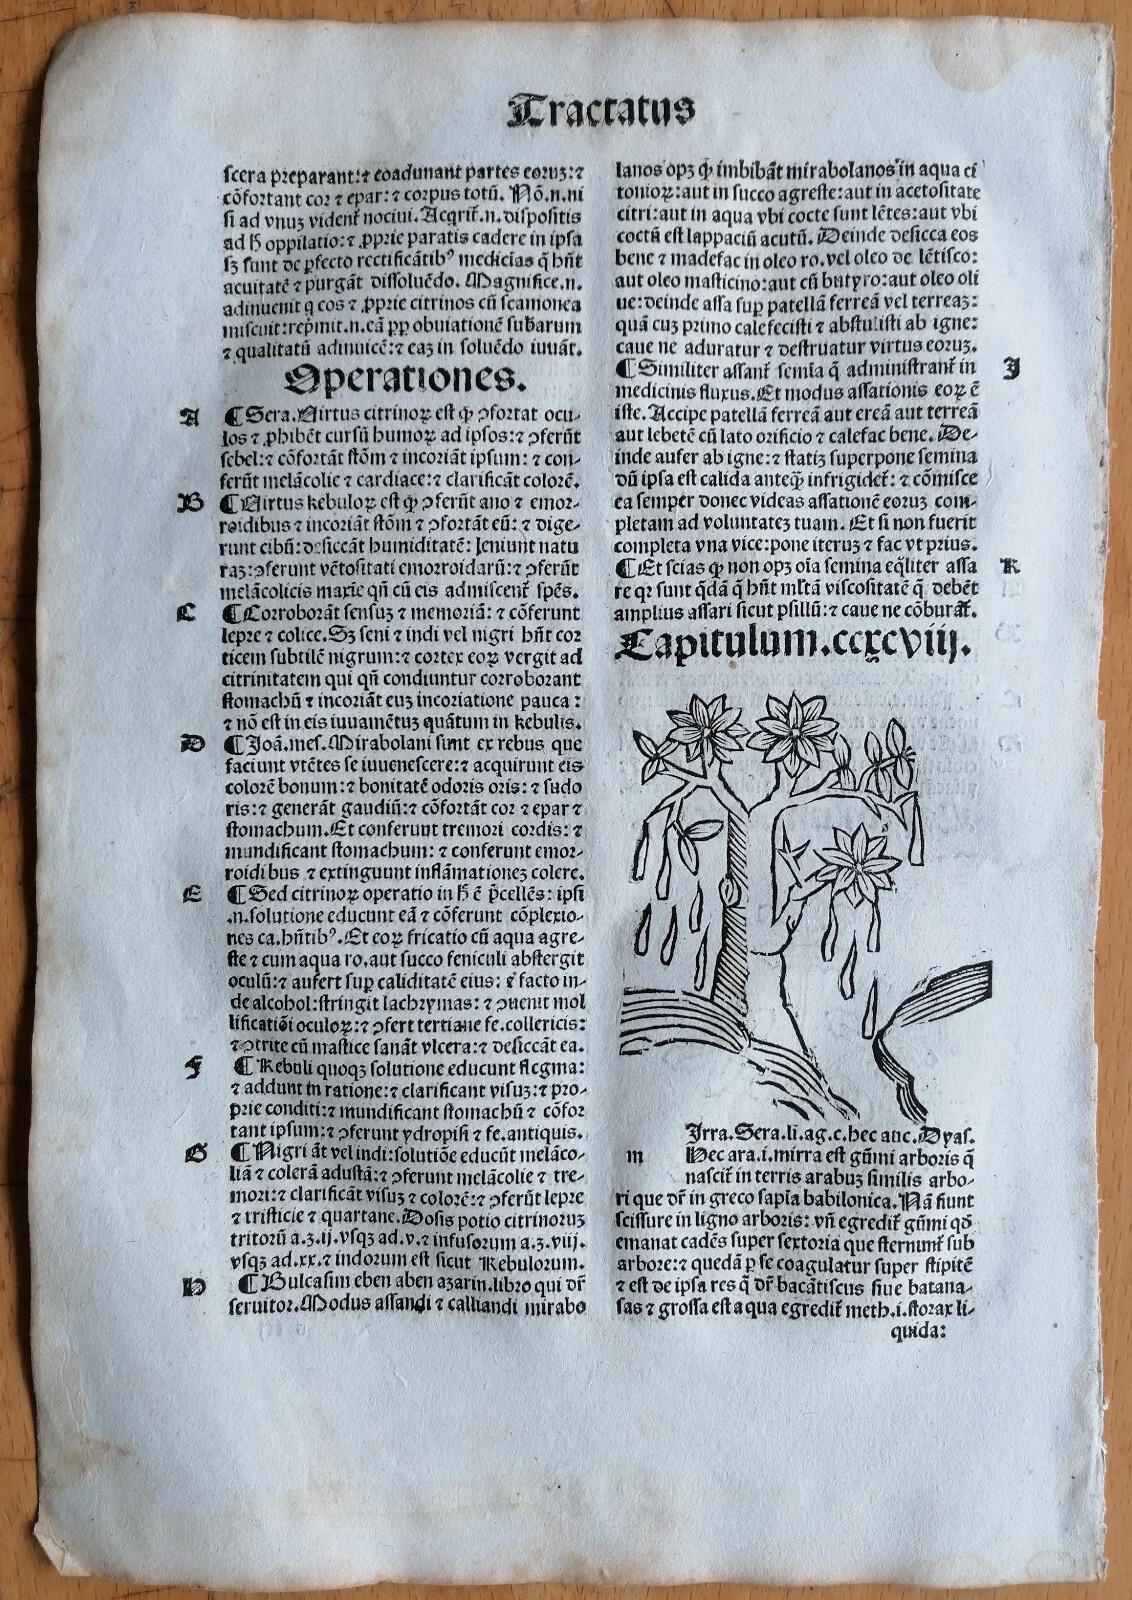 Tractatus
scera preparant:⁊ coadunant partes eoruꝫ:⁊
cõfortant cor ⁊ epar:⁊ corpus totũ. Nõ.n.ni
si ad vnuꝫ vident̃ nociui. Acqrit̃.n.dispositis
ad ħ oppilatio:⁊ ꝓprie paratis cadere in ipsa
sꝫ sunt de ꝑfecto rectificãtibꝰ medicĩas q̃ hñt
acuitatẽ ⁊ purgãt dissoluẽdo. Magnifice.n.
adinuenit q cos ⁊ ꝓprie citrinos cũ scamonea
miscuit:reprimit.n.eã pp obuiationẽ subarum
⁊ qualitatũ adinuicẽ:⁊ eaꝫ in soluẽdo iuuãt.
Operationes.
A ¶Sera.Virtus citrinoꝝ est ꝙ ↄfortat ocu-
los ⁊ ꝓhibẽt cursũ humoꝝ ad ipsos:⁊ ↄferũt
sebel:⁊ cõfortãt stõm ⁊ incoriãt ipsum:⁊ con-
ferũt melãcolie ⁊ cardiace:⁊ clarificãt colorẽ.
B ¶Virtus kebuloꝝ est ꝙ ↄferũt ano ⁊ emor-
roidibus ⁊ incoriãt stõm ⁊ ↄfortãt eũ:⁊ dige-
runt cibũ:desiccãt humiditatẽ: leniunt natu
raꝫ:ↄferunt vẽtositati emorroidarũ:⁊ ↄferũt
melãcolicis maxie qñ cũ eis admiscent̃ spẽs.
C ¶Corroborãt sensuꝫ ⁊ memoriã:⁊ cõferunt
lepre ⁊ colice.Sꝫ seni ⁊ indi vel nigri hñt cor
ticem subtilẽ nigrum:⁊ cortex eoꝝ vergit ad
citrinitatem qui qñ condiuntur corroborant
stomachũ ⁊ incoriãt euꝫ incoriatione pauca:
⁊ nõ est in eis iuuamẽtuꝫ quãtum in kebulis.
D ¶Joã.mes.Mirabolani sunt ex rebus que
faciunt vtẽtes se iuuenescere:⁊ acquirunt eis
colorẽ bonum:⁊ bonitatẽ odoris oris:⁊ sudo
ris:⁊ generãt gaudiũ:⁊ cõfortãt cor ⁊ epar ⁊
stomachum.Et conferunt tremori cordis:⁊
mundificant stomachum:⁊ conferunt emor-
roidibus ⁊ extinguunt inflãmationeꝫ colere.
E ¶Sed citrinoꝝ operatio in ħ ẽ p̃cellẽs: ipsi
.n.solutione educunt eã ⁊ cõferunt cõplexio-
nes ca.hñtibꝰ.Et eoꝝ fricatio cũ aqua agre-
ste ⁊ cum aqua ro.aut succo feniculi abstergit
oculũ:⁊ aufert suꝑ caliditatẽ eius: ⁊ facto in-
de alcohol:stringit lachrymas:⁊ ↄuenit mol
lificatiõi oculoꝝ:⁊ ↄfert tertiane fe.collericis:
⁊ ↄtrite cũ mastice sanãt vlcera:⁊ desiccãt ea.
F ¶Kebuli quoqꝫ solutione educunt flegma:
⁊ addunt in ratione:⁊ clarificant visuꝫ:⁊ pro-
prie conditi:⁊ mundificant stomachũ ⁊ cõfor
tant ipsum:⁊ ↄferunt ydropisi ⁊ fe.antiquis.
G ¶Nigri ãt vel indi:solutiõe educũt melãco-
liã ⁊ colerã adustã:⁊ ↄferunt melãcolie ⁊ tre-
mori:⁊ clarificãt visuꝫ ⁊ colorẽ:⁊ ↄferũt lepre
⁊ tristicie ⁊ quartane.Dosis potio citrinoruꝫ
tritorũ a.ʒ.ij.vsqꝫ ad.v.⁊ infusorum a.ʒ.viij.
vsqꝫ ad.xx.⁊ indorum est sicut Kebulorum.
H ¶Bulcasim eben aben aʒarin.libro qui dr̃
seruitor.Modus assandi ⁊ calliandi mirabo
lanos opꝫ ꝙ imbibãt mirabolanos in aqua ci
tonioꝝ:aut in succo agreste:aut in acetositate
citri:aut in aqua vbi cocte sunt lẽtes:aut vbi
coctũ est lappaciũ acutũ. Deinde desicca eos
bene ⁊ madefac in oleo ro.vel oleo de lẽtisco:
aut oleo masticino:aut cũ butyro:aut oleo oli
ue:deinde assa suꝑ patellã ferreã vel terreaꝫ:
quã cuꝫ primo calefecisti ⁊ abstulisti ab igne:
caue ne aduratur ⁊ destruatur virtus eoruꝫ.
¶Similiter assant̃ semĩa q̃ administrant̃ in J
medicinis fluxus.Et modus assationis eoꝝ ẽ
iste.Accipe patellã ferreã aut ereã aut terreã
aut lebetẽ cũ lato orificio ⁊ calefac bene. De-
inde aufer ab igne:⁊ statiꝫ superpone semina
dũ ipsa est calida anteq̃ infrigidet̃:⁊ cõmisce
ea semper donec videas assationẽ eoruꝫ com-
pletam ad voluntateꝫ tuam. Et si non fuerit
completa vna vice:pone iteruꝫ ⁊ fac vt prius.
¶Et scias ꝙ non opꝫ oĩa semina eq̃liter assa K
re qꝛ sunt q̃dã q̃ hñt ml̃tã viscositatẽ q̃ debẽt
amplius assari sicut psillũ:⁊ caue ne cõburãt̃.
Capitulum.ccxcviij.
Irra.Sera.li.ag.c.hec auc.Dyas.
m Hec ara.i.mirra est gũmi arboris q̃
nascit̃ in terris arabuꝫ similis arbo-
ri que dr̃ in greco sapĩa babilonica.Nã fiunt
scissure in ligno arboris: vñ egredit̃ gũmi qd̃
emanat cadẽs super sextoria que sternunt̃ sub
arbore:⁊ quedã ꝑ se coagulatur super stipitẽ
⁊ est de ipsa res q̃ dr̃ bacãtiscus siue batana-
sas ⁊ grossa est a qua egredit̃ meth.i.storax li-
quida: